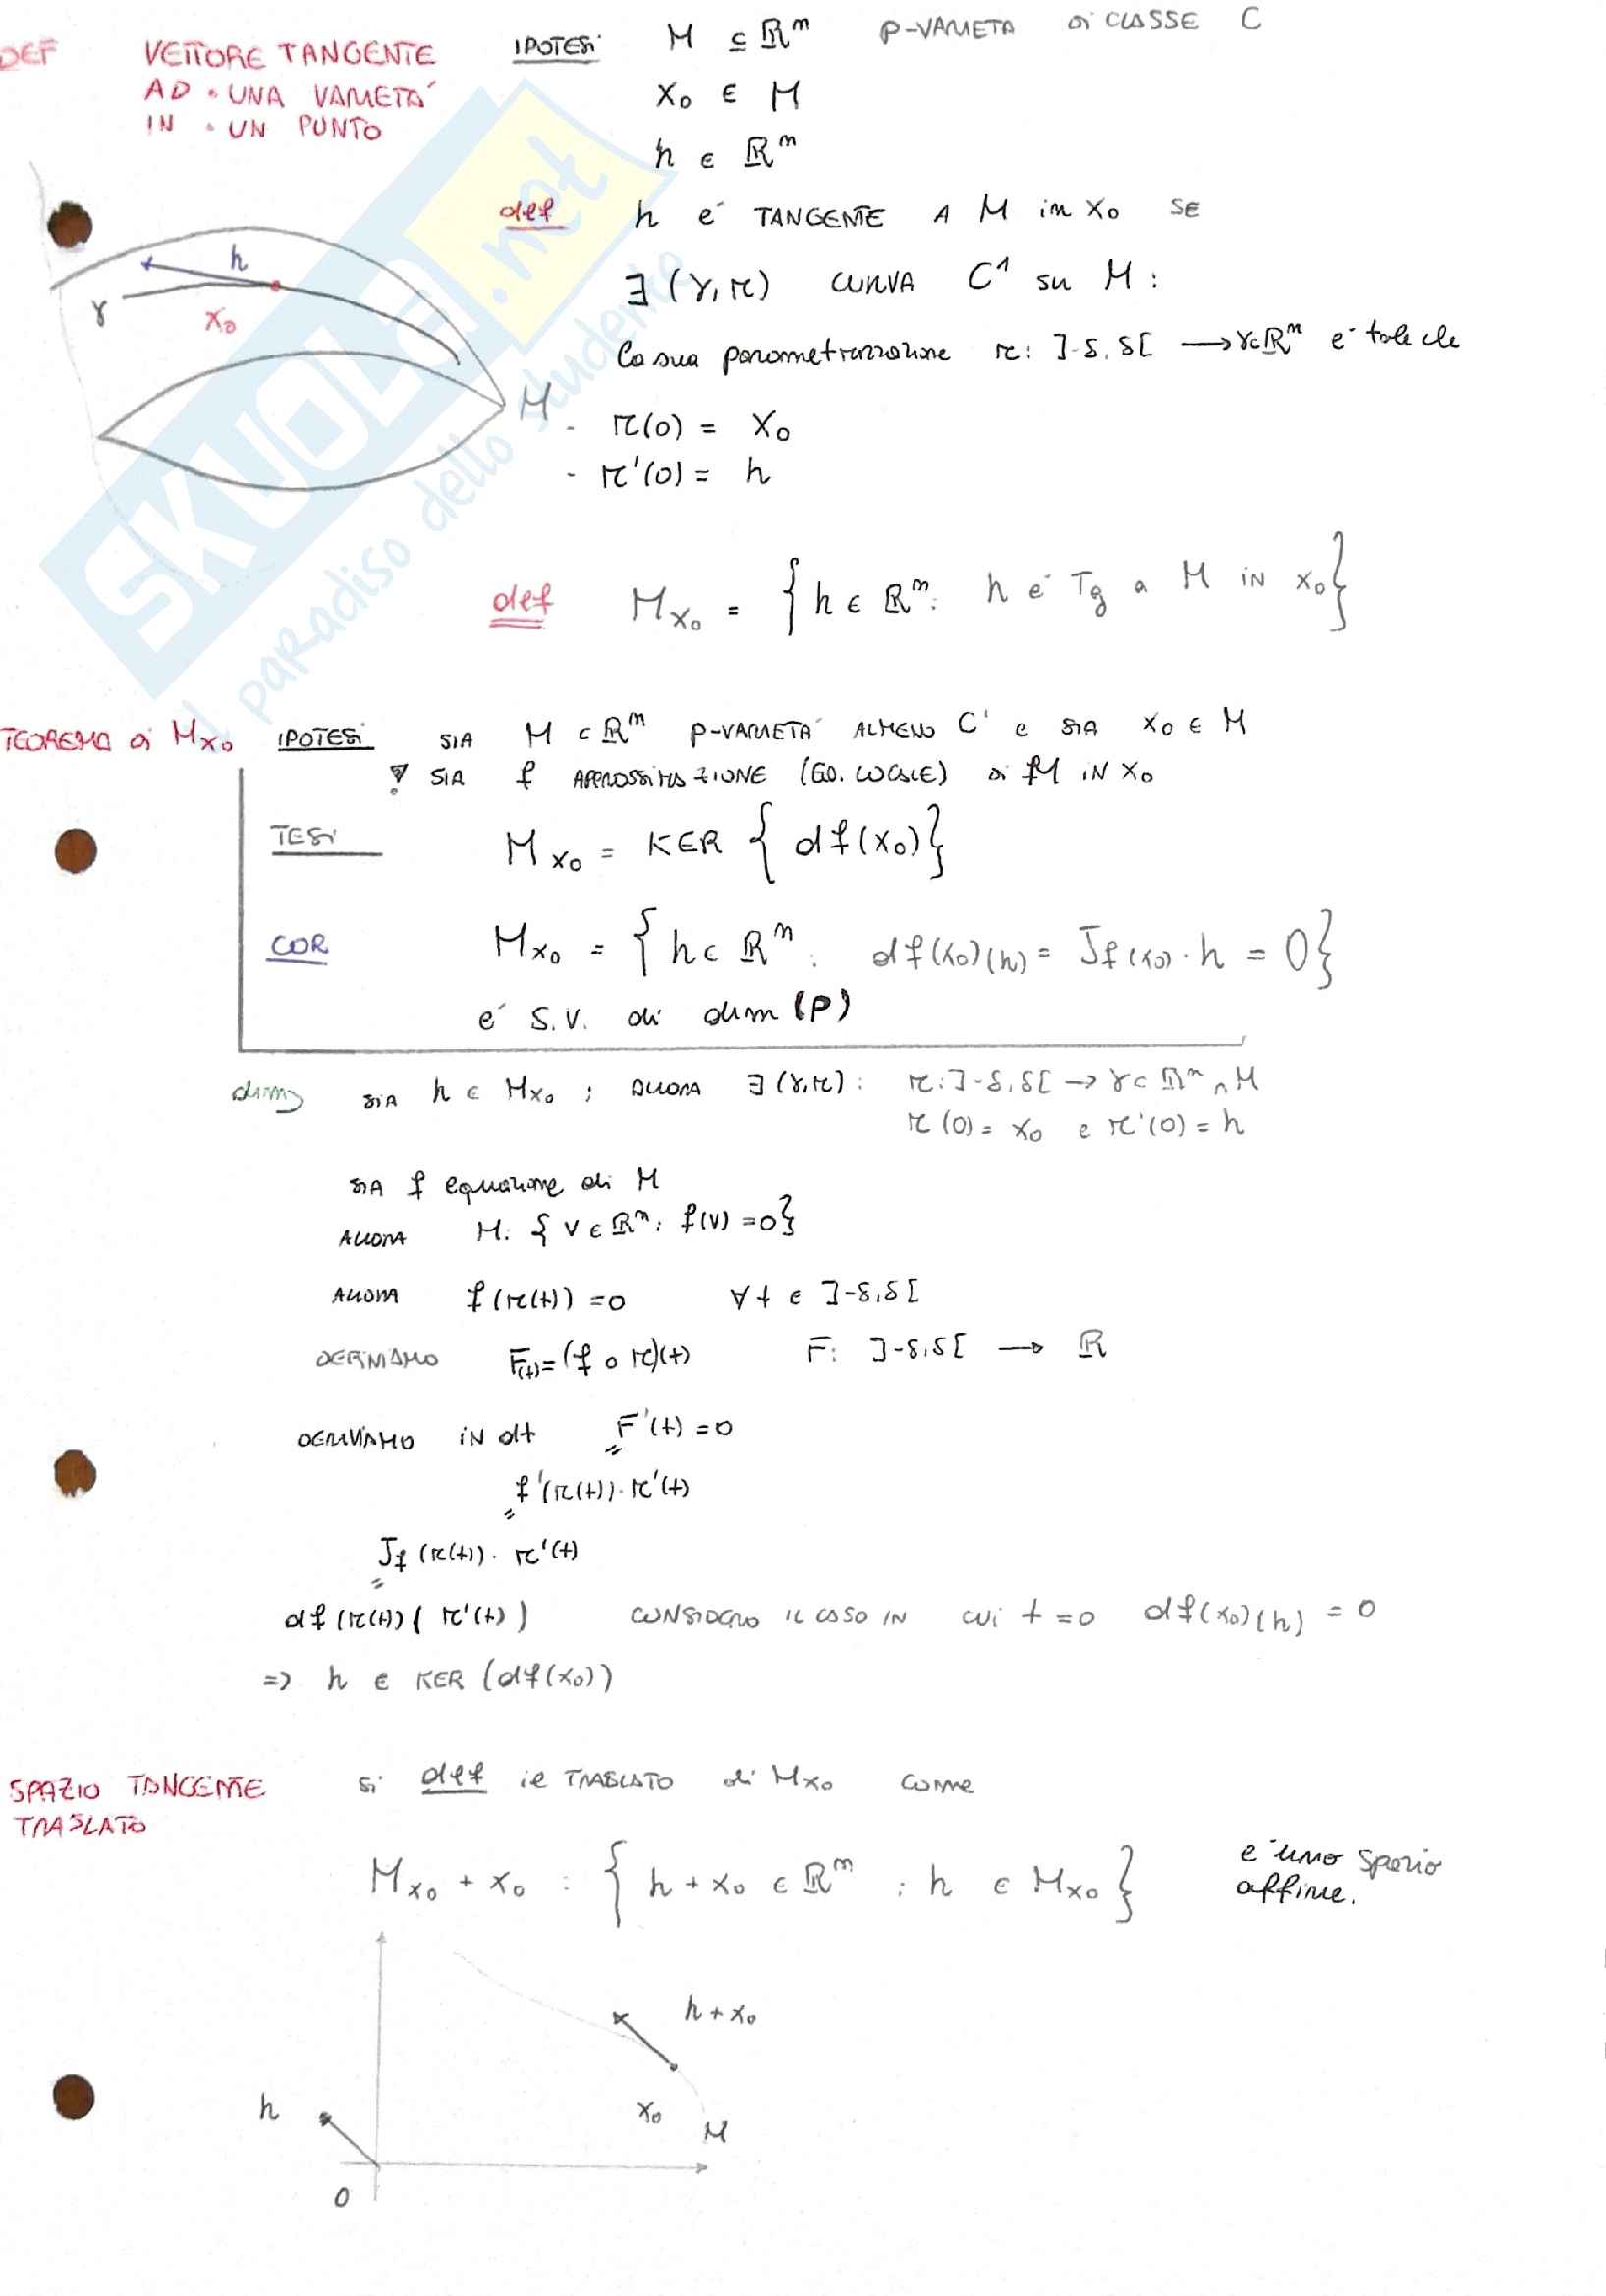 DEF VETTORE TANGENTE IPOTESI M ⊆ ℝⁿ P-VARIETÀ DI CLASSE C
AD • UNA VARIETÀ x₀ ∈ M
IN • UN PUNTO
h ∈ ℝⁿ
def h è TANGENTE A M in x₀ SE
∃ (γ, r) CURVA C¹ su M :
la sua parametrizzazione r: ]-δ, δ[ → γ⊂ℝⁿ è tale che
h
γ
x₀
M
- r(0) = x₀
- r'(0) = h
def M_x₀ = { h ∈ ℝⁿ: h è Tg a M IN x₀ }
SKUOLA.net
il paradiso dello studente
TEOREMA di M_x₀ IPOTESI SIA M ⊂ ℝⁿ P-VARIETÀ ALMENO C¹ e SIA x₀ ∈ M
SIA f APPROSSIMAZIONE (EQ. LOCALE) di M IN x₀
TESI M_x₀ = KER { df(x₀) }
COR M_x₀ = { h ∈ ℝⁿ : df(x₀)(h) = Jf(x₀) · h = 0 }
è S.V. di dim (P)
dim SIA h ∈ M_x₀ ; ALLORA ∃ (γ, r) : r: ]-δ, δ[ → γ ⊂ ℝⁿ ∩ M
r(0) = x₀ e r'(0) = h
SIA f equazione di M
ALLORA M: { v ∈ ℝⁿ: f(v) = 0 }
ALLORA f(r(t)) = 0 ∀ t ∈ ]-δ, δ[
DERIVIAMO F(t) = (f ∘ r)(t) F: ]-δ, δ[ → ℝ
DERIVIAMO IN dt F'(t) = 0
=
f'(r(t)) · r'(t)
=
Jf (r(t)) · r'(t)
=
df (r(t)) ( r'(t) ) CONSIDERO IL CASO IN cui t = 0 df(x₀)(h) = 0
=> h ∈ KER (df(x₀))
SPAZIO TANGENTE si def il TRASLATO di M_x₀ come
TRASLATO
M_x₀ + x₀ : { h + x₀ ∈ ℝⁿ : h ∈ M_x₀ } è uno spazio
affine.
h + x₀
h
x₀
M
0